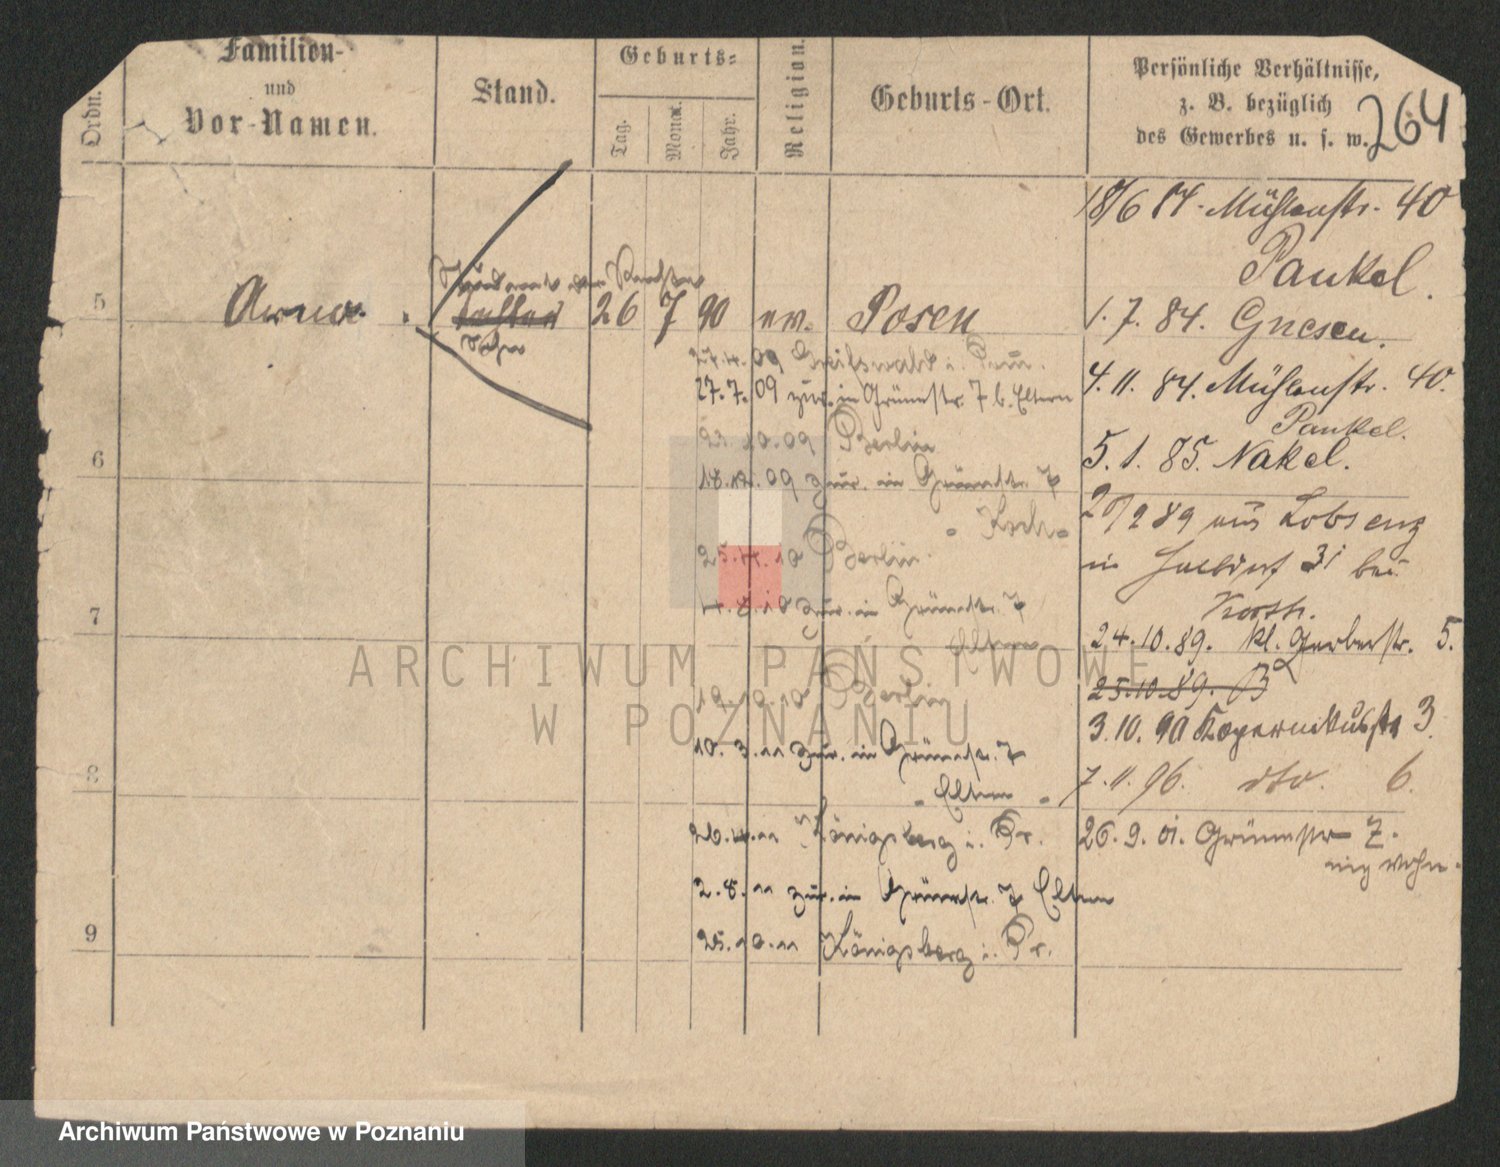 Ordn.
Familien-
und
Vor-Namen.
Stand.
Geburts-
Tag.
Monat.
Jahr.
Religion.
Geburts-Ort.
Persönliche Verhältnisse,
z. B. bezüglich
des Gewerbes u. s. w.
264
18/6 84. Mühlenstr. 40
Pankel.
5
26 7 90 ev. Posen
1. 7. 84. Gnesen.
09 Greifswald i. Pom.
27.7.09 zur. in Grünestr. 7 b. Eltern
4. 11. 84. Mühlenstr. 40.
Pankel.
10.09 Berlin
5. 1. 85. Nakel.
6
09 zur. in Grünestr. 7
89 aus Lobsenz
25.4.10 Berlin
in 31 bei
7
10 zur. in Grünestr. 7
Eltern
24.10.89. kl. Gerberstr. 5.
25.10.89. B
10 Berlin
3.10.90 Kopernikusstr 3.
10.3.11 zur. in Grünestr. 7
Eltern
7.11.96. dto. 6.
8
26.4.11 Königsberg i. Pr.
26.9.01. Grünestr 7.
2.8.11 zur. in Grünestr. 7 Eltern
9
25.10.11 Königsberg i. Pr.
ARCHIWUM PAŃSTWOWE
W POZNANIU
Archiwum Państwowe w Poznaniu